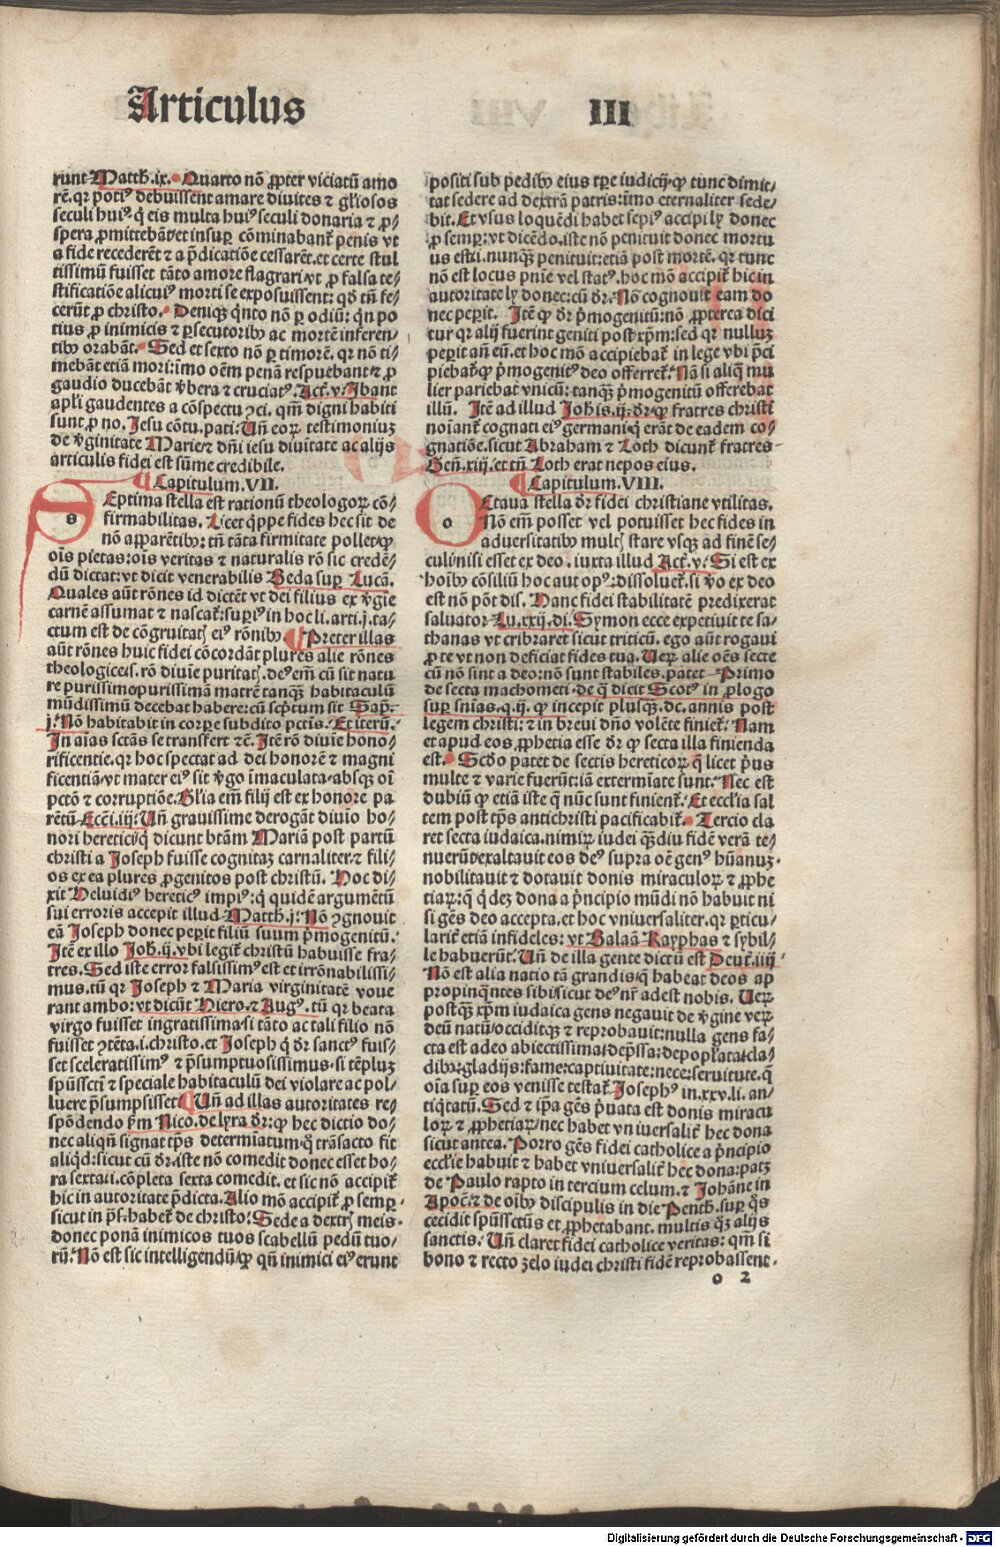 Articulus III
runt Matth.ix. Quarto nō ꝓpter viciatū amo
rē.qꝛ potiꝰ debuissent amare diuites ⁊ gl'iosos
seculi huiꝰ.q̇ eis multa huiꝰ seculi donaria ⁊ ꝓ/
spera ꝓmittebāt:et insuꝑ cōminabant̃ penis vt
a fide recederēt ⁊ a p̄dicatiōe cessarēt.et certe stul
tissimū fuisset tāto amore flagrari:vt ꝓ falsa te/
stificatiōe alicuiꝰ morti se exposuissent: qd̓ tn̄ fe/
cerūt ꝓ christo. Deniqꝫ q̇nto nō ꝑ odiū: qn po
tius ꝓ inimicis ⁊ ꝑsecutoribꝰ ac mortē inferen/
tibꝰ orabāt. Sed et sexto nō ꝑ timorē. qꝛ nō ti/
mebāt etiā mori:imo oēm penā respuebant:⁊ ꝓ
gaudio ducebāt v̓bera ⁊ cruciatꝰ. Act̃.v. Ibant
apl'i gaudentes a cōspectu ꝯci. qm̄ digni habiti
sunt ꝓ no. Jesu cōtu. pati. Un̄ eoꝝ testimoniuꝫ
de v̓ginitate Marie:⁊ dn̄i iesu diuitate ac alijs
articulis fidei est sūme credibile.
Capitulum.VII.
SEptima stella est rationū theologoꝝ cō/
firmabilitas. Licet q̇ppe fides hec sit de
nō apparētibꝰ: tn̄ tāta firmitate pollet:ꝙ
oīs pietas:oīs veritas ⁊ naturalis rō sic credē/
dū dictat:vt dicit venerabilis Beda suꝑ Lucā.
Quales aūt rōnes id dictēt vt dei filius ex v̓gie
carnē assumat ⁊ nascat̃:supiꝰ in hoc li. arti.j.ta/
ctum est de cōgruitatꝭ eiꝰ rōnibꝰ. Preter illas
aūt rōnes huic fidei cōcordāt plures alie rōnes
theologice:s.rō diuīe puritatꝭ.deꝰ em̄ cū sit natu
re purissime:purissimā matrē tanqꝫ habitaculū
mūdissimū decebat habere:cū sc̓ptum sit Sap̄.
j. Nō habitabit in corꝑe subdito pctīs. Et iterū.
In aīas sctās se transfert ⁊c̄. Itē rō diuīe hono/
rificentie.qꝛ hoc spectat ad dei honorē ⁊ magni
ficentiā:vt mater eiꝰ sit v̓go īmaculata:absqꝫ oī
pctō ⁊ corruptiōe. Gl'ia em̄ filij est ex honore pa
rētū. Ecc̄i.iij. Un̄ grauissime derogāt diuio ho/
nori heretici:q̇ dicunt btām Mariā post partū
christi a Joseph fuisse cognitaꝫ carnaliter:⁊ fili/
os ex ea plures ꝓgenitos post christū. Hoc di/
xit Heluidiꝰ hereticꝰ impiꝰ: q̇ quidē argumētū
sui erroris accepit illud Matth.j. Nō ꝯgnouit
eā Joseph donec peperit filiū suum p̓mogenitū.
Itē ex illo Joh.ij.vbi legit̃ christū habuisse fra/
tres. Sed iste error falsissimꝰ est et irrōnabilissi/
mus.tū qꝛ Joseph ⁊ Maria virginitatē voue
rant ambo: vt dicūt Hiero.⁊ Augꝰ. tū qꝛ beata
virgo fuisset ingratissima:si tāto ac tali filio nō
fuisset ꝯtēta.i.christo. et Joseph q̇ dr̄ sanctꝰ fuis/
set sceleratissimꝰ ⁊ p̄sumptuosissimus.si tēpluꝫ
spūssctī ⁊ speciale habitaculū dei violare ac pol/
luere p̄sumpsisset. Un̄ ad illas autoritates re/
spōdendo fm̄ Nico. de lyra dr̄: ꝙ hec dictio do/
nec aliqn̄ signat tp̄s determiatum:q̇ trāsacto fit
aliqd̓:sicut cū dr̄.iste nō comedit donec esset ho/
ra sexta:i.cōpleta sexta comedit. et sic nō accipit̃
hic in autoritate p̄dicta. Alio mō accipit̃ ꝓ semꝑ.
sicut in p̄s.habet̃ de christo: Sede a dextrꝭ meis.
donec ponā inimicos tuos scabellū pedū tuo/
rū. Nō est sic intelligendū:ꝙ qn̄ inimici eiꝰ erunt
positi sub pedibꝰ eius tꝑe iudicij:ꝙ tunc dimit/
tat sedere ad dextrā patris:imo eternaliter sede/
bit. Et vsus loquēdi habet sepiꝰ accipi ly donec
ꝓ semꝑ: vt dicēdo.iste nō penituit donec mortu
us est:i.nunqꝫ penituit:etiā post mortē. qꝛ tunc
nō est locus pn̄ie vel statꝰ.hoc mō accipit̃ hic in
autoritate ly donec:cū dr̄. Nō cognouit eam do
nec peꝑit. Itē ꝙ dr̄ p̓mogenitū:nō ꝓpterea dici
tur qꝛ alij fuerint geniti post xp̄m:sed qꝛ nulluꝫ
peꝑit an̄ eū.et hoc mō accipiebat̃ in lege vbi p̄ci
piebat̃:ꝙ p̓mogenitꝰ deo offerret̃. Nā si aliq̄ mu
lier pariebat vnicū: tanqꝫ p̓mogenitū offerebat
illū. Itē ad illud Johis.ij. dr̄:ꝙ fratres christi
noīant̃ cognati eiꝰ germani:q̇ erāt de eadem co/
gnatiōe.sicut Abraham ⁊ Loth dicunt̃ fratres
Gen̄.xiij.et tn̄ Loth erat nepos eius.
Capitulum.VIII.
OCtaua stella dr̄ fidei christiane vtilitas.
Nō em̄ posset vel potuisset hec fides in
aduersitatibꝰ multꝭ stare vsqꝫ ad finē se/
culi:nisi esset ex deo. iuxta illud Act̃.v. Si est ex
hoībꝰ cōsiliū hoc aut opꝰ: dissoluet̃.si v̓o ex deo
est nō pōt dis. Hanc fidei stabilitatē predixerat
saluator Lu.xxij.di. Symon ecce expetiuit te sa/
thanas vt cribraret sicut triticū. ego aūt rogaui
ꝓ te vt non deficiat fides tua. Ueꝝ alie oēs secte
cū nō sint a deo:nō sunt stabiles.patet Primo
de secta machometi.de q̄ dicit Scotꝰ in ꝓlogo
suꝑ snīas.q.ij. ꝙ incepit plusqꝫ.dc. annis post
legem christi: ⁊ in breui dn̄o volēte finiet̃. Nam
et apud eos ꝓphetia esse dr̄ ꝙ secta illa finienda
est. Scd̓o patet de sectis hereticoꝝ q̄ licet p̓us
multe ⁊ varie fuerūt:iā extermīate sunt. Nec est
dubiū ꝙ etiā iste q̄ nūc sunt finient̃. Et eccl'ia sal
tem post tp̄s antichristi pacificabit̃. Tercio cla
ret secta iudaica.nimiꝝ iudei qꝫdiu fidē verā te/
nuerūt:exaltauit eos deꝰ supra oē genꝰ hūanuꝫ.
nobilitauit ⁊ dotauit donis miraculoꝝ ⁊ ꝓphe
tiaꝝ: q̄ q̇dez dona a p̓ncipio mūdi nō habuit ni
si gēs deo accepta.et hoc vniuersaliter.qꝛ ꝑticu/
larit̃ etiā infideles: vt Balaā Kayphas ⁊ sybil/
le habuerūt. Un̄ de illa gente dictū est Deut̃.iiij
Nō est alia natio tā grandis:q̄ habeat deos ap
propinq̄ntes sibi:sicut deꝰ nr̄ adest nobis. Ueꝝ
postqꝫ xp̄m iudaica gens negauit de v̓gine veꝝ
deū natū:⁊ occidit:qꝫ ⁊ reprobauit:nulla gens fa/
cta est adeo abiectissima:dep̄ssa:depopl'ata:cla/
dibꝰ:gladijs:fame:captiuitate:nece:seruitute.q̄
oīa suꝑ eos venisse testat̃ Josephꝰ in.xxv.li.an/
tiq̇tatū. Sed ⁊ ip̄a gēs p̓uata est donis miracu
loꝝ ⁊ ꝓphetiaꝝ:nec habet vniuersalit̃ hec dona
sicut antea. Porro gēs fidei catholice a p̓ncipio
eccl'ie habuit ⁊ habet vniuersalit̃ hec dona:patꝫ
de Paulo rapto in tercium celum.⁊ Johāne in
Apoc̄.⁊ de oībꝰ discipulis in die Pentħ.suꝑ q̇s
cecidit spūssctūs et ꝓphetabant. multis qꝫ alijs
sanctis. Un̄ claret fidei catholice veritas: qm̄ si
bono ⁊ recto zelo iudei christi fidē reprobassent.
o 2
Digitalisierung gefördert durch die Deutsche Forschungsgemeinschaft - DFG